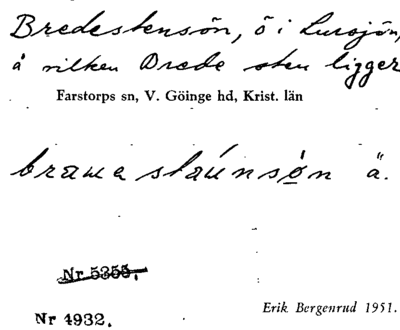 Bredestensön, ö i Lursjön,
å vilken Brede sten ligger
Farstorps sn, V. Göinge hd, Krist. län
stáunsøn ä.
Nr 5355.
Nr 4932.
Erik Bergenrud 1951.